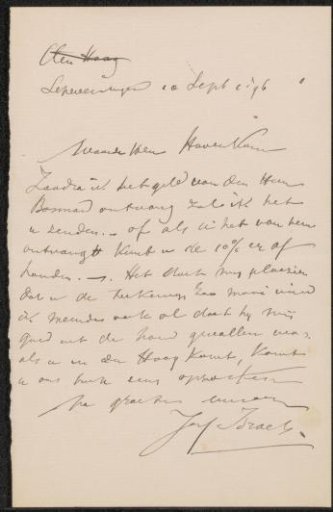 Den Haag
Scheveningen 10 Sept 1896
Waarde Heer Haverkorn
Zoodra ik het geld van den Heer
ontvang zal ik het
u zenden. - of als u het van hem
ontvangt kunt u de 10% er af
houden. -. Het doet mij plezier
dat u de teekening zoo mooi vind
ik meende ook al dat hij mij
goed uit de hand gevallen was
als u in den Haag komt, komt
u ons eens opzoeken
Na groeten
Jozef Israels.